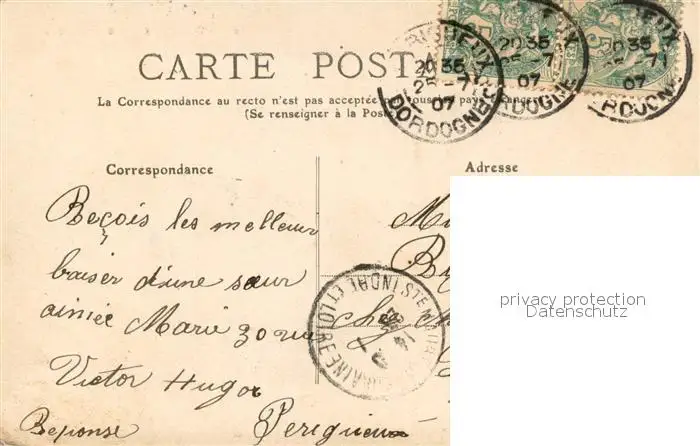 CARTE POST
La Correspondance au recto n'est pas acceptée par tous les pays étrangers
(Se renseigner à la Poste)
PERIGUEUX
20 35
25 - 7
07
DORDOGNE
20 35
25 - 7
07
DORDOGNE
20 35
25 - 7
07
DORDOGNE
Correspondance
Adresse
Reçois les meilleur
baiser d'une sœur
aimée Marie 30 rue
Victor Hugo
Perigueux
Reponse
chez
INDRE ET LOIRE
privacy protection
Datenschutz